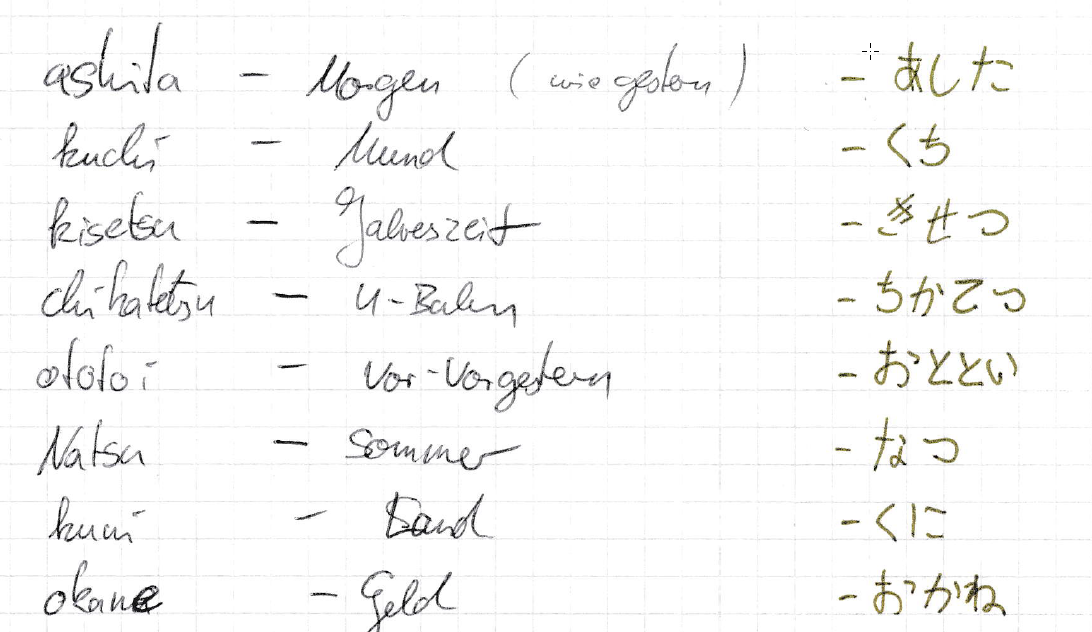 ashita - Morgen (wie gestern) - あした
kuchi - Mund - くち
kisetsu - Jahreszeit - きせつ
chikatetsu - U-Bahn - ちかてつ
ototoi - Vor-Vorgestern - おととい
Natsu - Sommer - なつ
kuni - Land - くに
okane - Geld - おかね